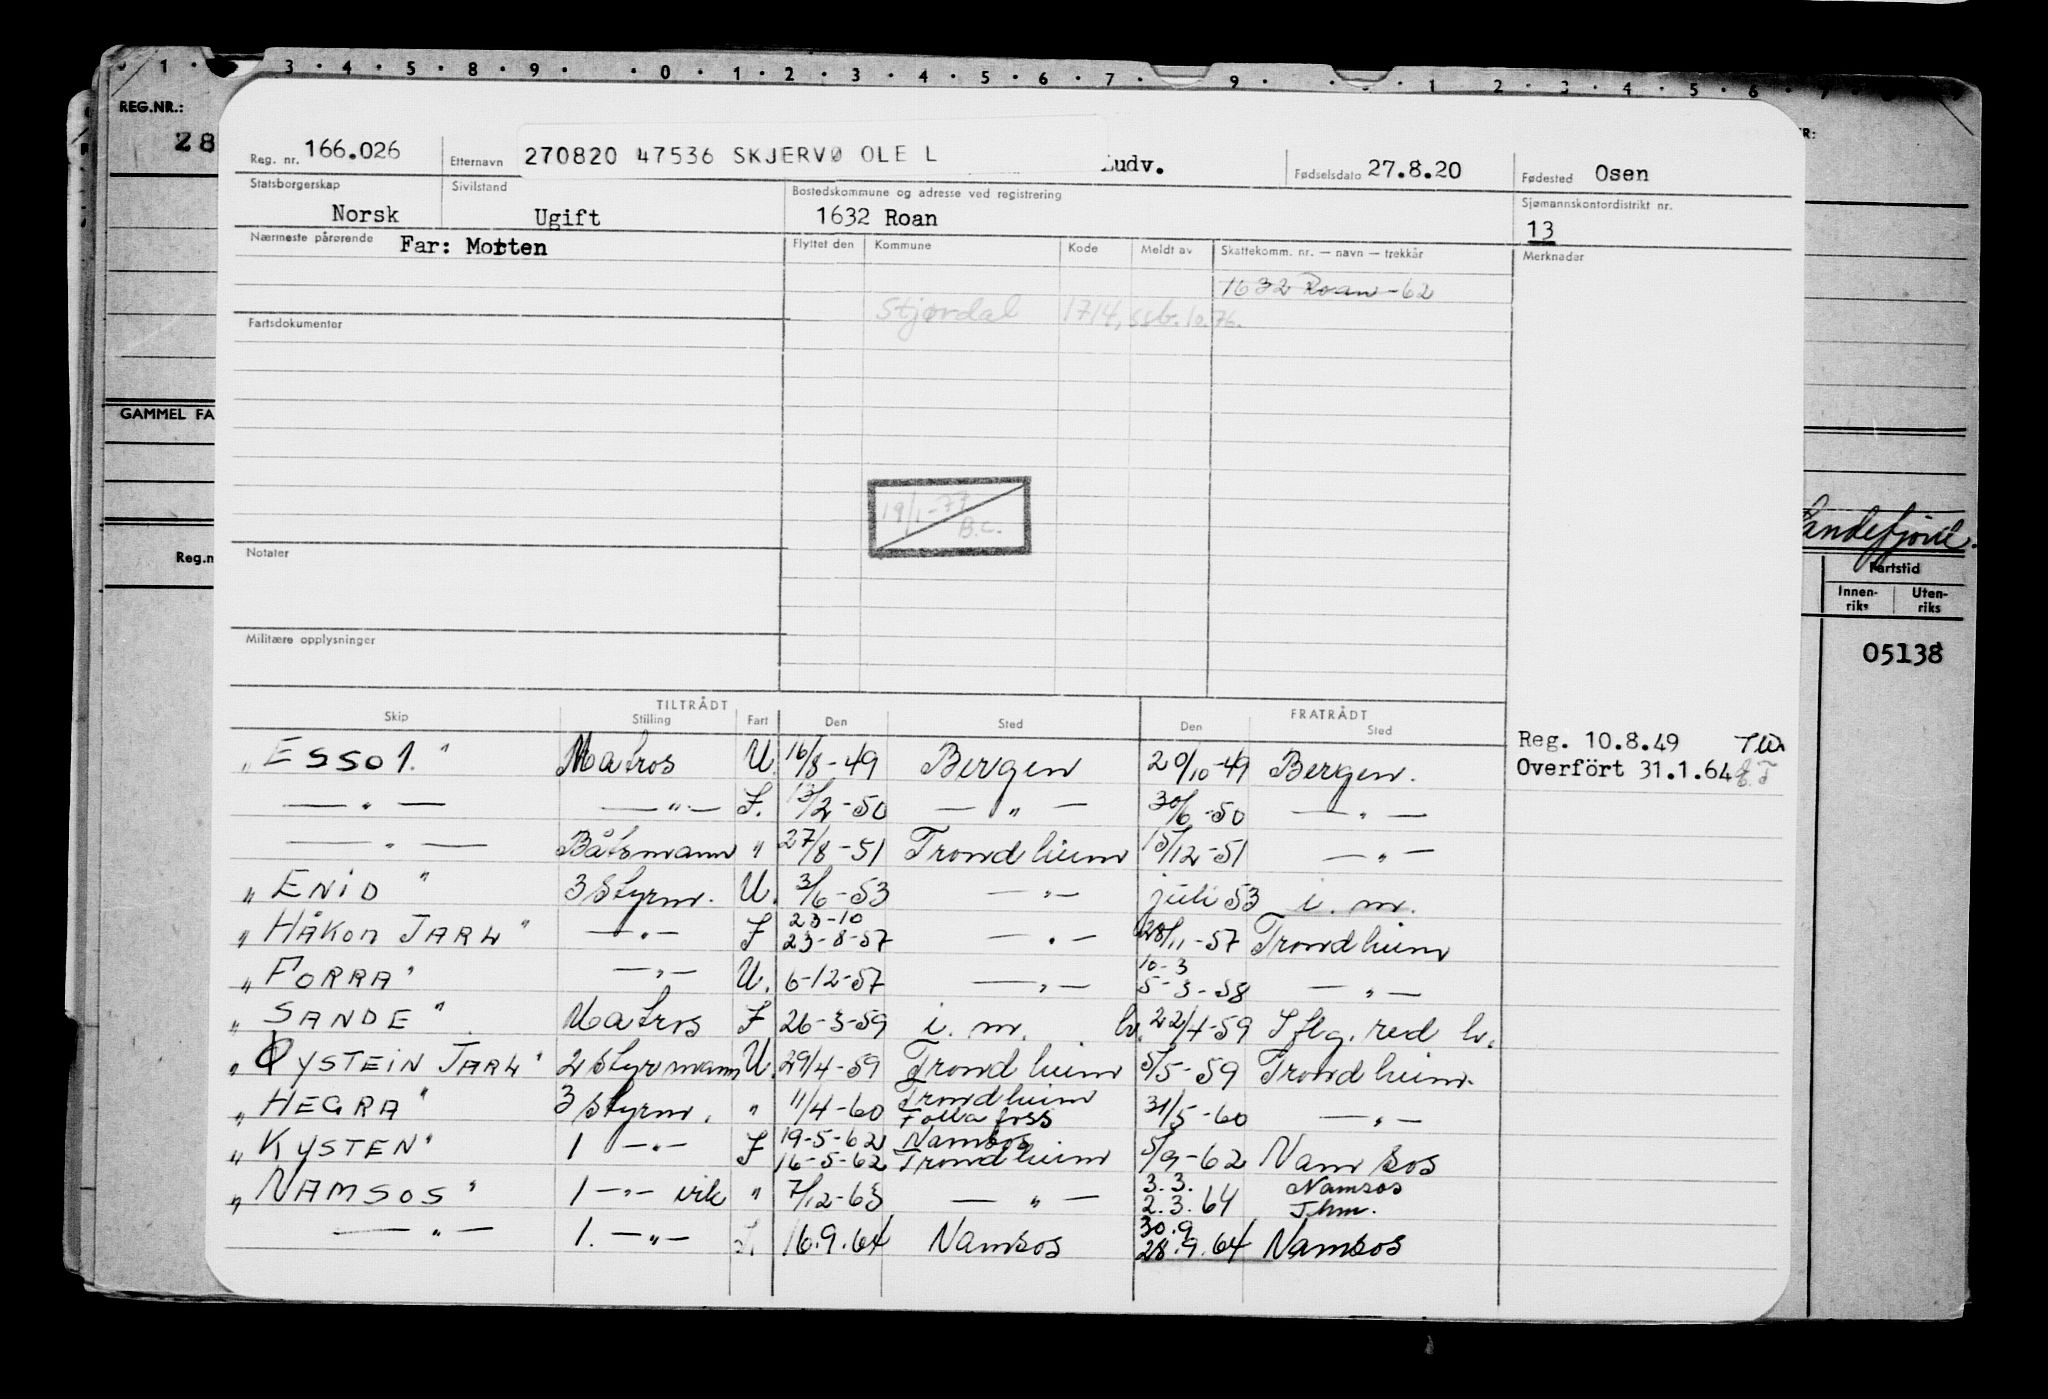 1 · 3 · 4 · 5 · 8 · 9 · 0 · 1 · 2 · 3 · 4 · 5 · 6 · 7 · 9 · 1 2 · 3 · 4 · 5 · 6 · 7
REG.NR.:
28
Reg. nr. 166.026 Etternavn 270820 47536 SKJERVØ OLE L Ludv. Fødselsdato 27.8.20 Fødested Osen
Statsborgerskap Norsk Sivilstand Ugift Bostedskommune og adresse ved registrering 1632 Roan Sjømannskontordistrikt nr. 13
Nærmeste pårørende Far: Morten Flyttet den Kommune Kode Meldt av Skattekomm. nr. — navn — trekkår Merknader
1632 Roan -62
Stjørdal 1714, ssb. 10.76.
Fartsdokumenter
GAMMEL FA
19/1-77 B.C.
Sandefjord.
Reg.n
Notater
Fartstid
Innen-riks Uten-riks
Militære opplysninger
05138
TILTRÅDT FRATRÅDT
Skip Stilling Fart Den Sted Den Sted
Reg. 10.8.49
Overfört 31.1.64
"Esso 1." Matros U. 16/8-49 Bergen 20/10-49 Bergen.
— " — — " — F. 13/2-50 — " — 30/6-50 — " —
— " — Båtsmann " 27/8-51 Trondheim 15/12-51 — " —
"ENID" 3 Styrm. U. 3/6-53 — " — juli 53 i. m.
"HÅKON JARL" — " — F 23-10 23-8-57 — " — 28/11-57 Trondheim
"FORRA" — " — U. 6-12-57 — " — 10-3 5-3-58 — " —
"SANDE" Matros F 26-3-59 i. m. lv. 22/4-59 Sflg. red lv.
"ØYSTEIN JARL" 2 Styrmann U. 29/4-59 Trondheim 5/5-59 Trondheim.
"HEGRA" 3 Styrm. " 11/4-60 Trondheim Follafoss 31/5-60 — " —
"KYSTEN" 1 — " — F 19-5-62 Namsos 16-5-62 Trondheim 5/9-62 Namsos
"NAMSOS" 1 — " — vik " 7/12-63 — " — 3.3. Namsos 2.3.64 Thm.
— " — 1. — " — 16.9.64 Namsos 30.9 28.9.64 Namsos